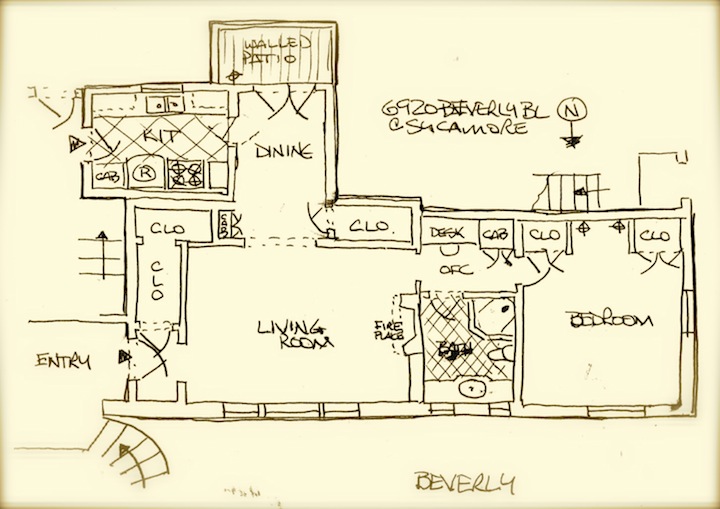 WALLED
PATIO
6920 BEVERLY BL
@ SYCAMORE
N
KIT
DINING
CAB
R
CLO
CLO.
DESK
CAB
CLO
CLO
CLO
OFC
LIVING
ROOM
FIRE
PLACE
BATH
BEDROOM
ENTRY
BEVERLY